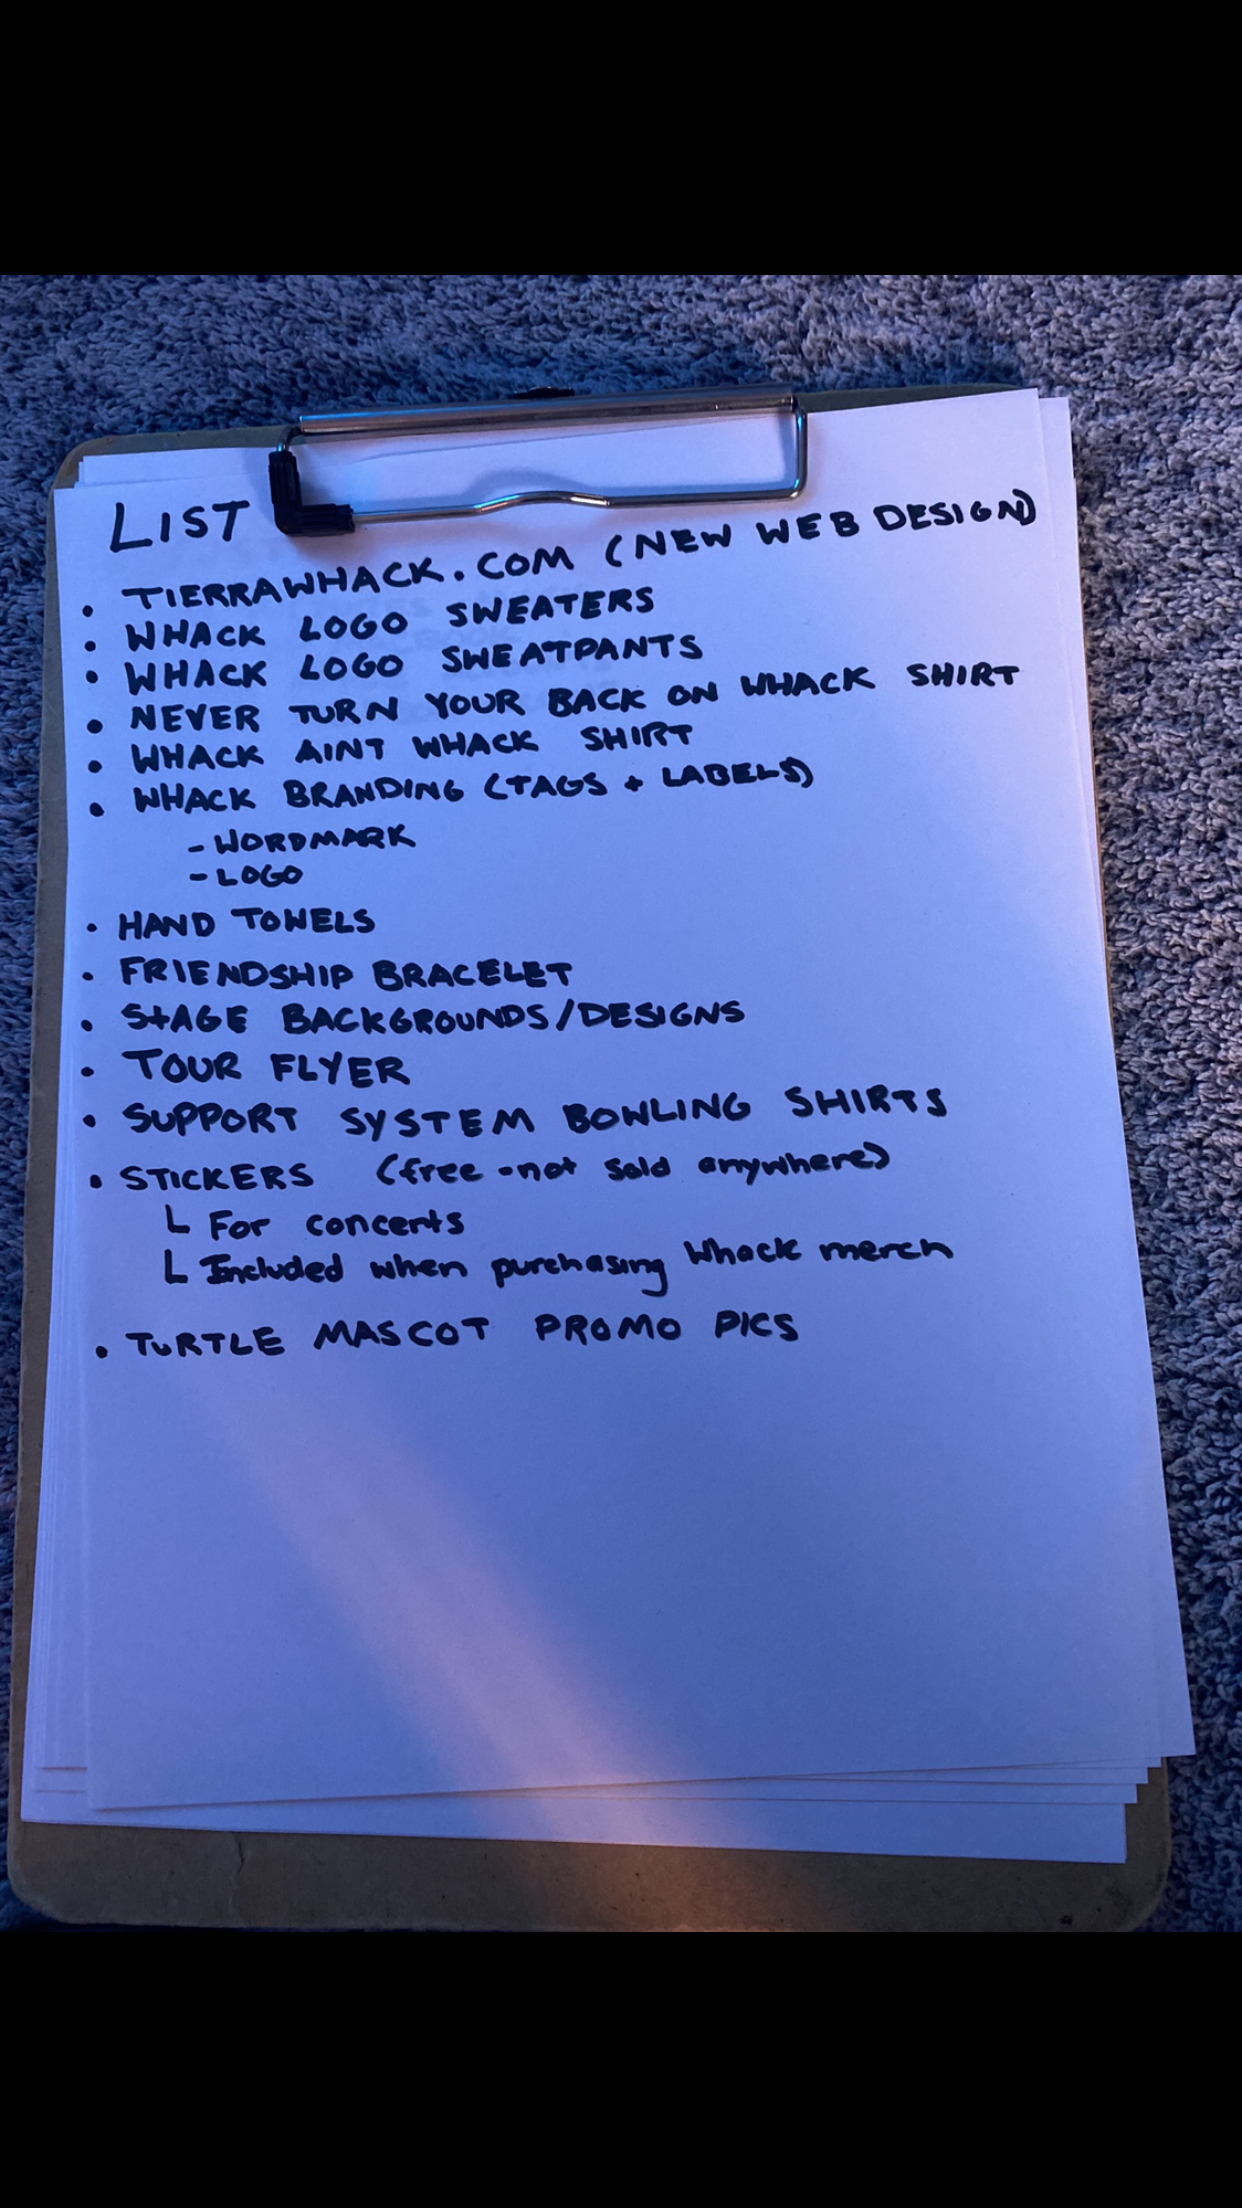 LIST
• TIERRAWHACK.COM (NEW WEB DESIGN)
• WHACK LOGO SWEATERS
• WHACK LOGO SWEATPANTS
• NEVER TURN YOUR BACK ON WHACK SHIRT
• WHACK AINT WHACK SHIRT
• WHACK BRANDING (TAGS + LABELS)
- WORDMARK
- LOGO
• HAND TOWELS
• FRIENDSHIP BRACELET
• STAGE BACKGROUNDS/DESIGNS
• TOUR FLYER
• SUPPORT SYSTEM BOWLING SHIRTS
• STICKERS (free - not sold anywhere)
L For concerts
L Included when purchasing Whack merch
• TURTLE MASCOT PROMO PICS